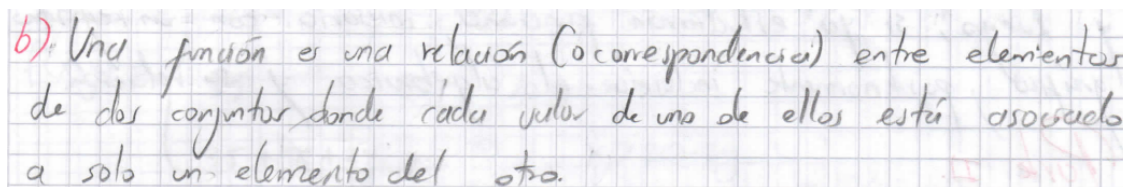 b). Una función es una relación (o correspondencia) entre elementos
de dos conjuntos donde cada valor de uno de ellos está asociado
a solo un elemento del otro.